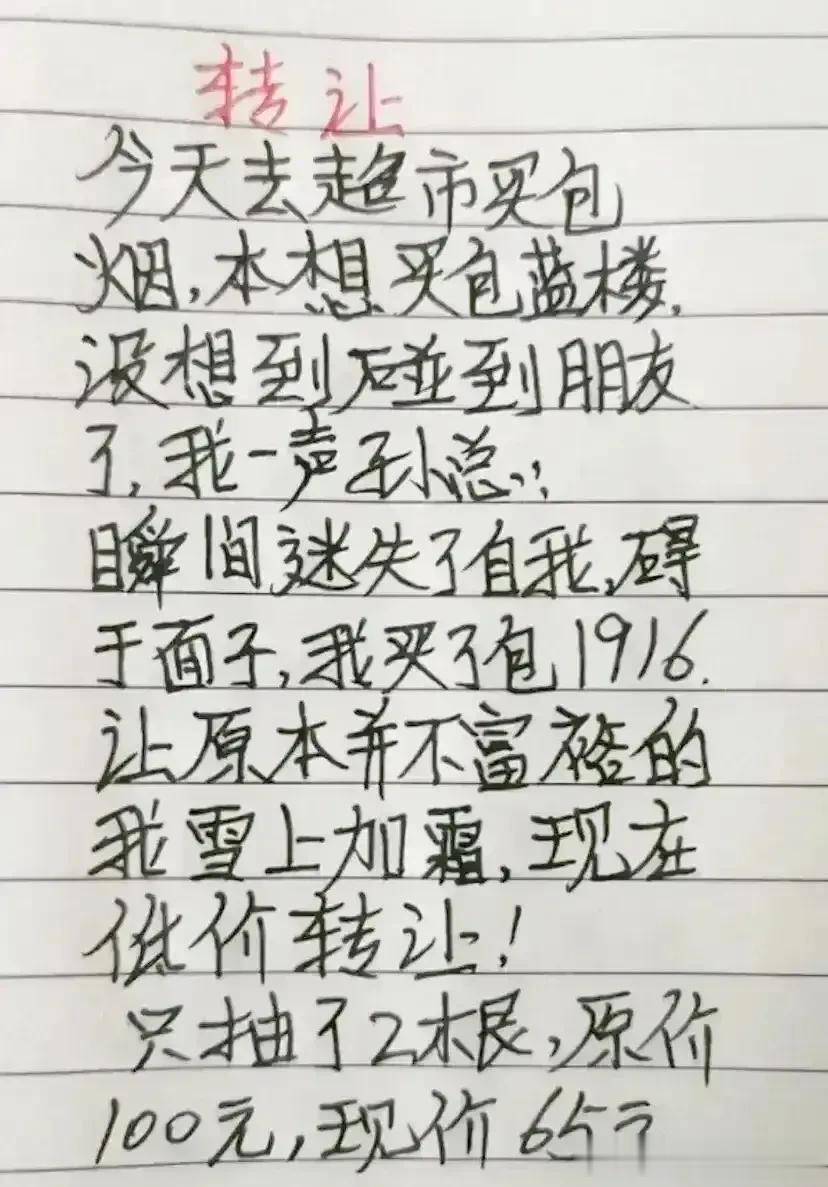 转让
今天去超市买包
烟,本想买包蓝楼,
没想到碰到朋友
了,我一声孙总,,
瞬间迷失了自我,碍
于面子,我买了包1916.
让原本并不富裕的
我雪上加霜,现在
低价转让!
只抽了2根,原价
100元,现价65元